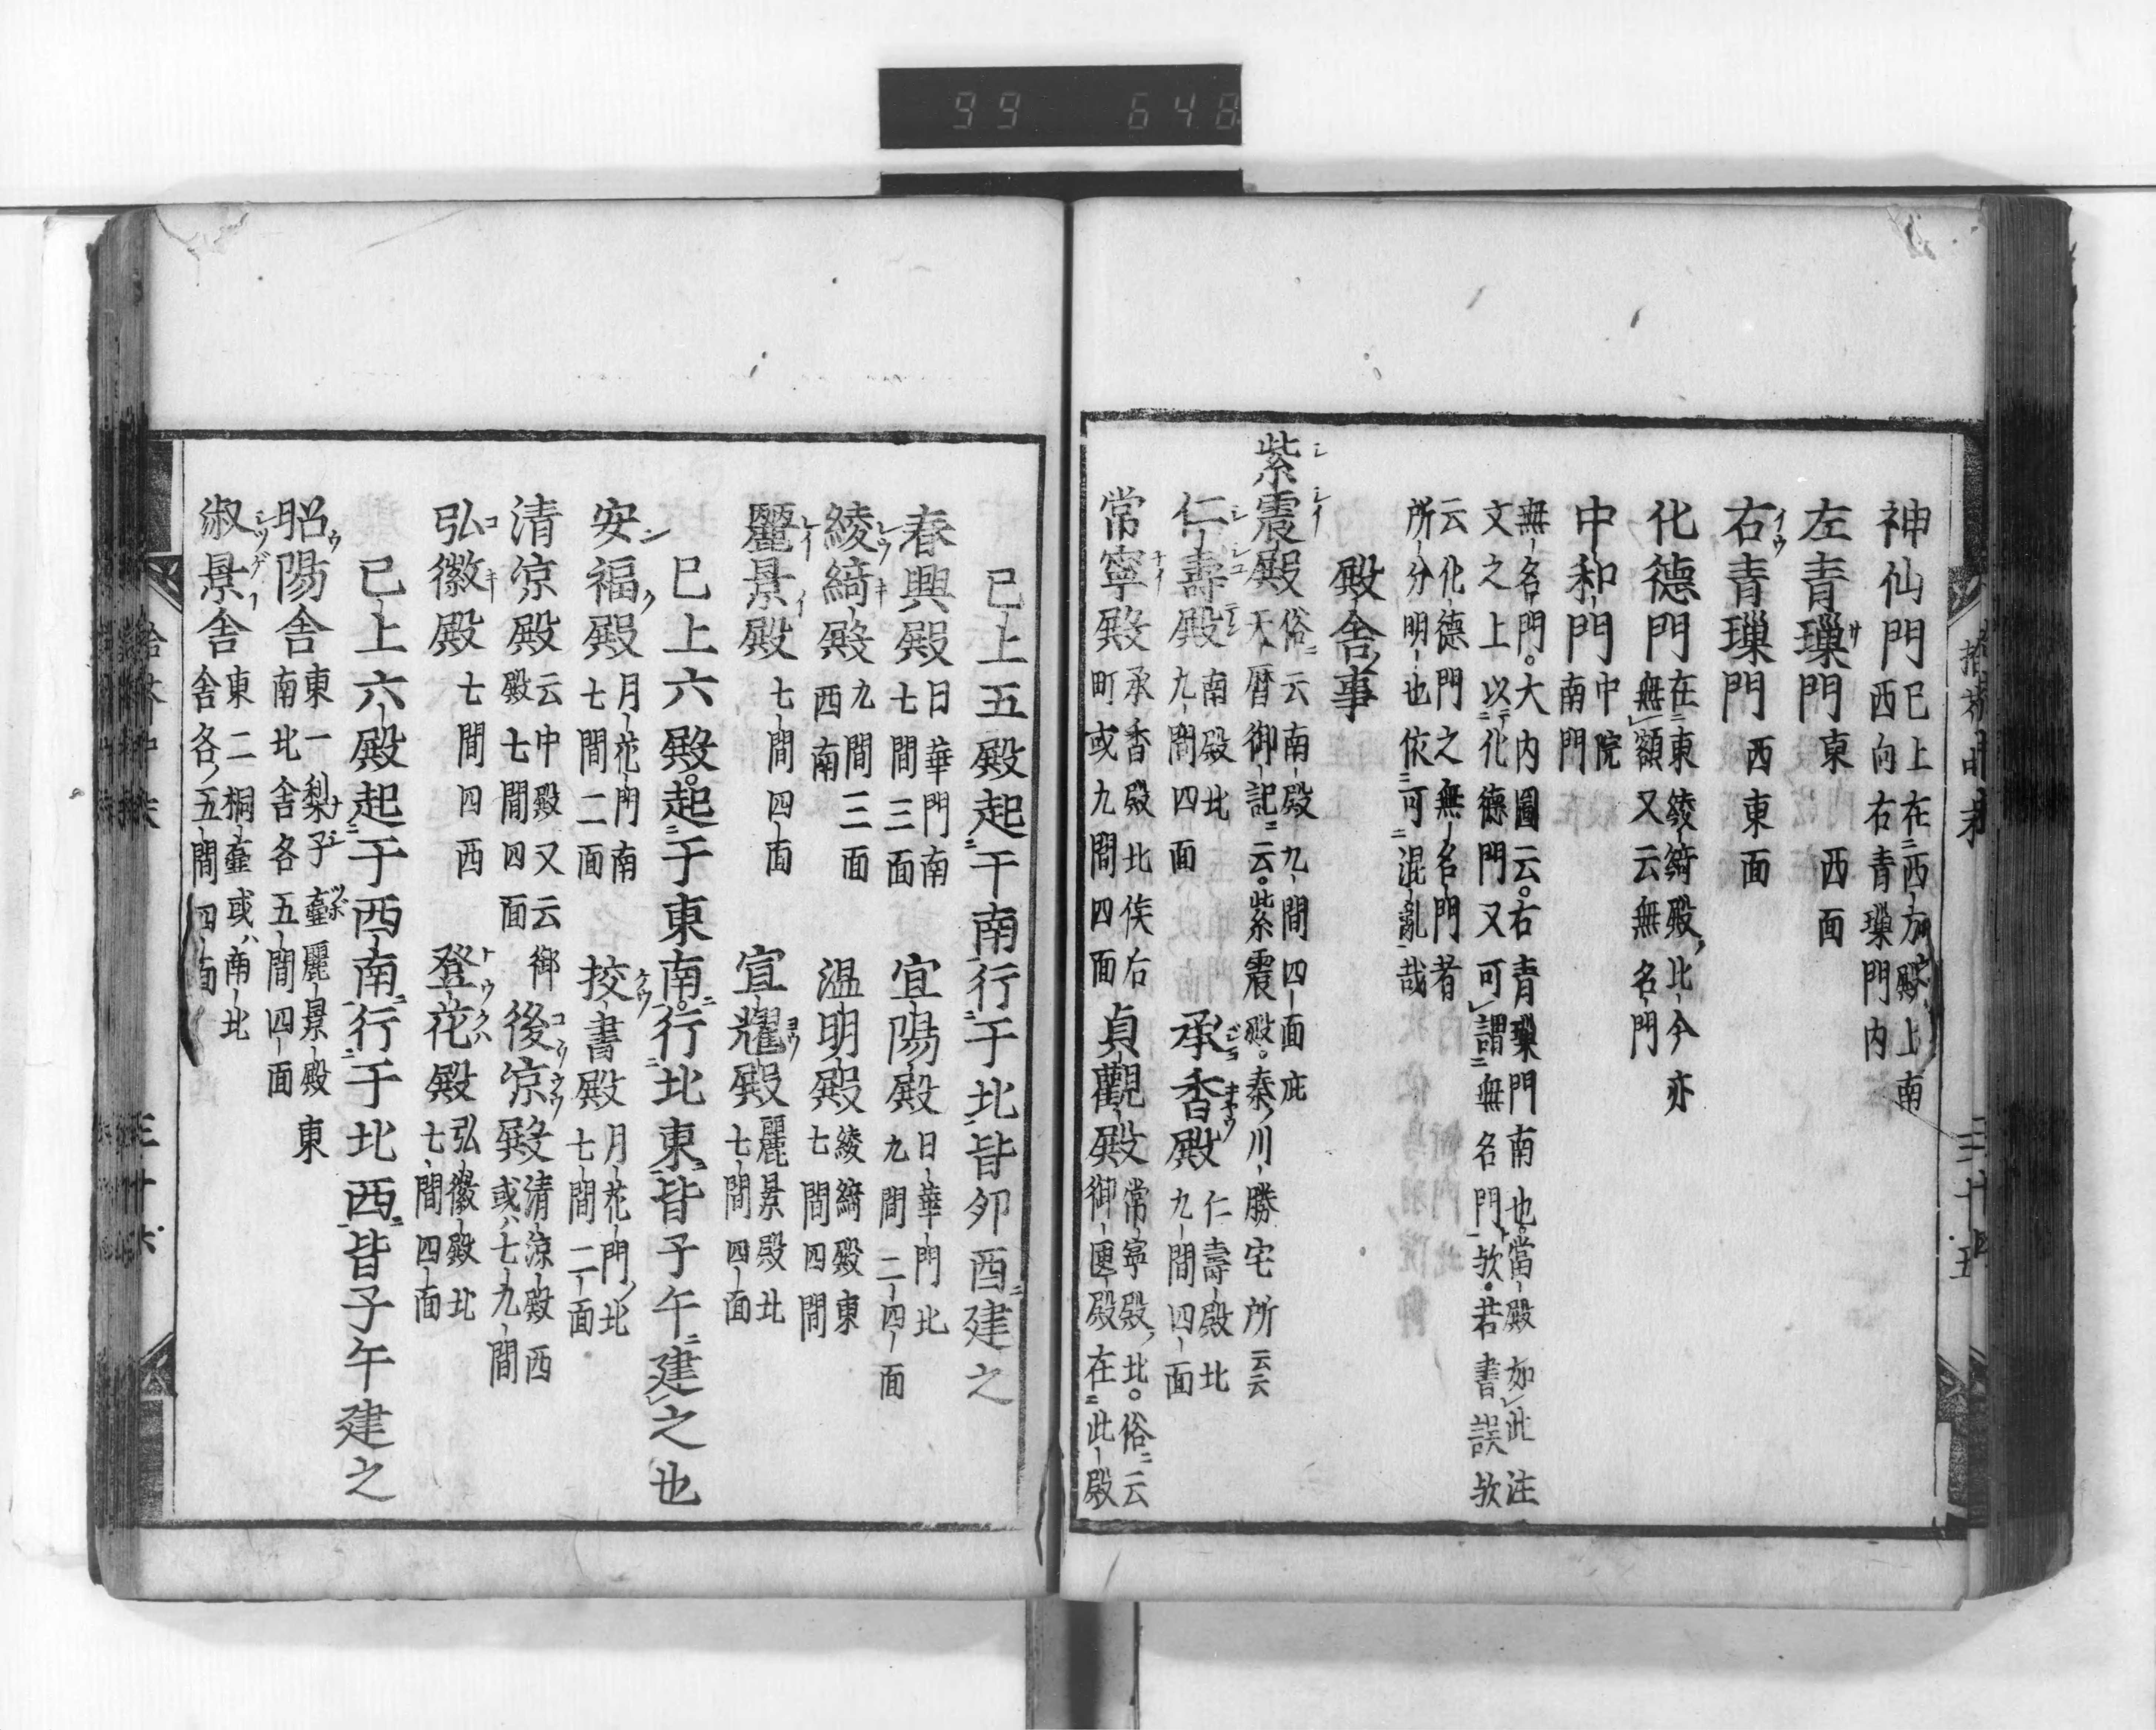 99 648
神仙門 已上在西方殿上南
西向右青璅門内
左青璅門 東西面
右青璅門 西東面
化德門 在東綾綺殿北今亦
無額又云無名門
中和門 中院
南門
無名門。大内圖云。右青璅門南也當殿如此注
文之上以化德門又可謂無名門歟。若書誤歟
云化德門之無名門者
所分明也依可混亂哉
殿舍事
紫震殿 俗云南殿九間四面庇
天曆御記云。紫震殿。秦川勝宅所云云
仁壽殿 南殿北
九間四面
承香殿 仁壽殿北
九間四面
常寧殿 承香殿北俟右
町或九間四面
貞觀殿 常寧殿北。俗云
御匣殿在此殿
三十五
已上五殿起于南行于北皆卯酉建之
春興殿 日華門南
七間三面
宜陽殿 日華門北
九間二四面
綾綺殿 九間三面
西南
温明殿 綾綺殿東
七間四間
麗景殿 七間四面
宣耀殿 麗景殿北
七間四面
已上六殿。起于東南。行北東皆子午建之也
安福殿 月花門南
七間二面
挍書殿 月花門北
七間二面
清涼殿 云中殿又云御
殿七間四面
後涼殿 清涼殿西
或七九間
弘徽殿 七間四西
登花殿 弘徽殿北
七間四面
已上六殿起于西南行于北西皆子午建之
昭陽舍 東一梨子壷麗景殿東
南北舍各五間四面
淑景舍 東二桐壷或南北
舍各五間四面
三十六